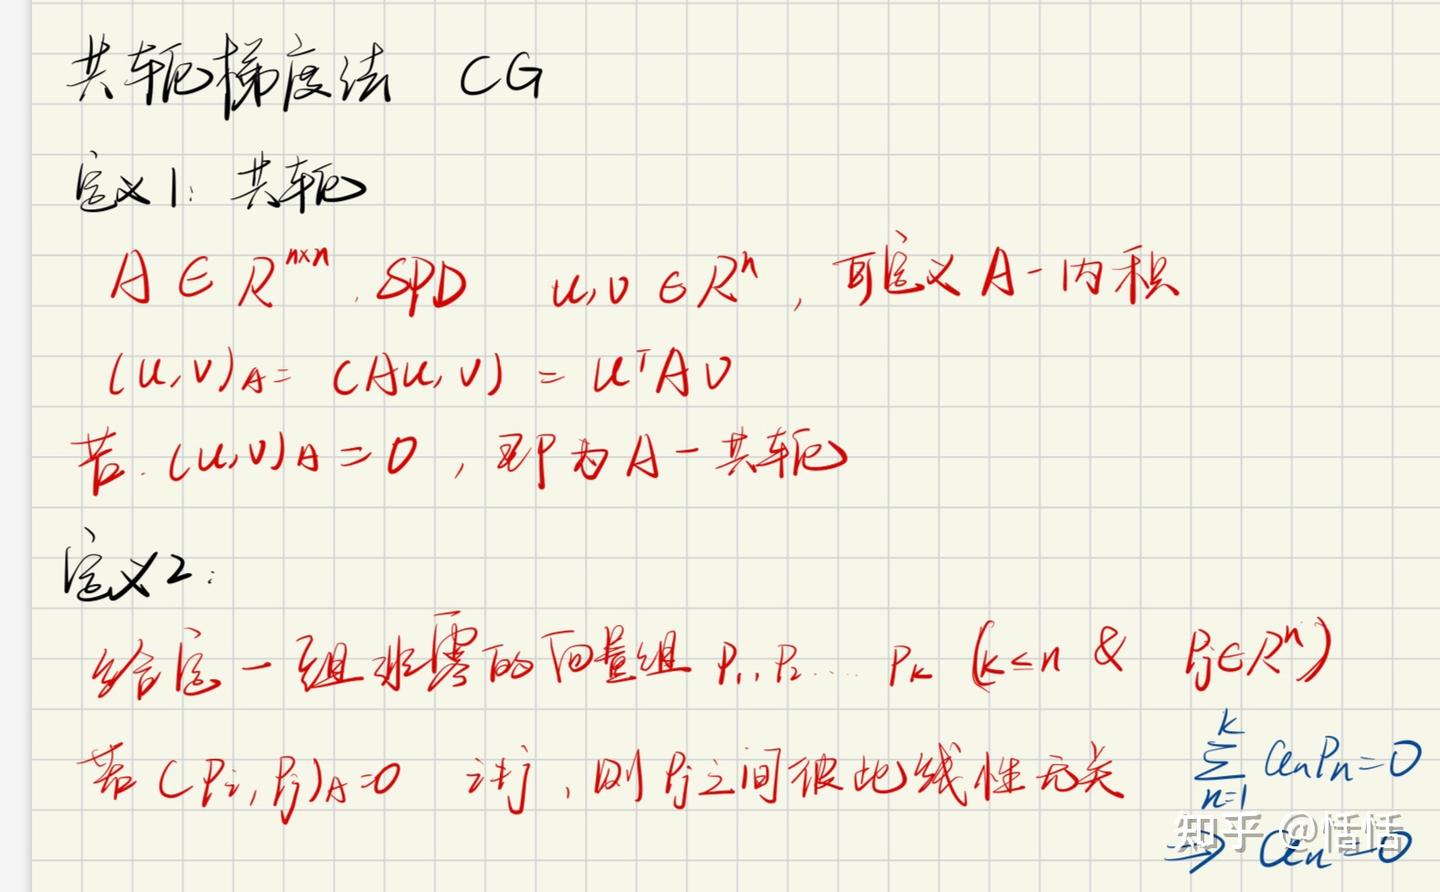 共轭梯度法 CG
定义1: 共轭
A ∈ R^{n×n}. SPD u,v ∈ R^n, 可定义 A-内积
(u,v)_A = (Au,v) = u^T A v
若. (u,v)_A = 0, 即为 A-共轭
定义2:
给定一组非零的向量组 P_1, P_2 .... P_k (k≤n & P_j∈R^n)
若 (P_i, P_j)_A=0 i≠j, 则 P_j 之间彼此线性无关
\sum_{n=1}^{k} a_n P_n = 0
⇒ a_n = 0
知乎 @恬恬